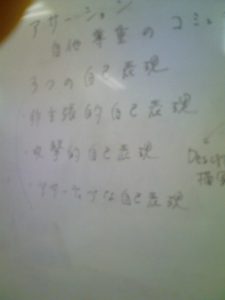 アサーション
自他尊重のコミュ
3つの自己表現
・非主張的自己表現
・攻撃的自己表現
・アサーティブな自己表現
Descri
描写